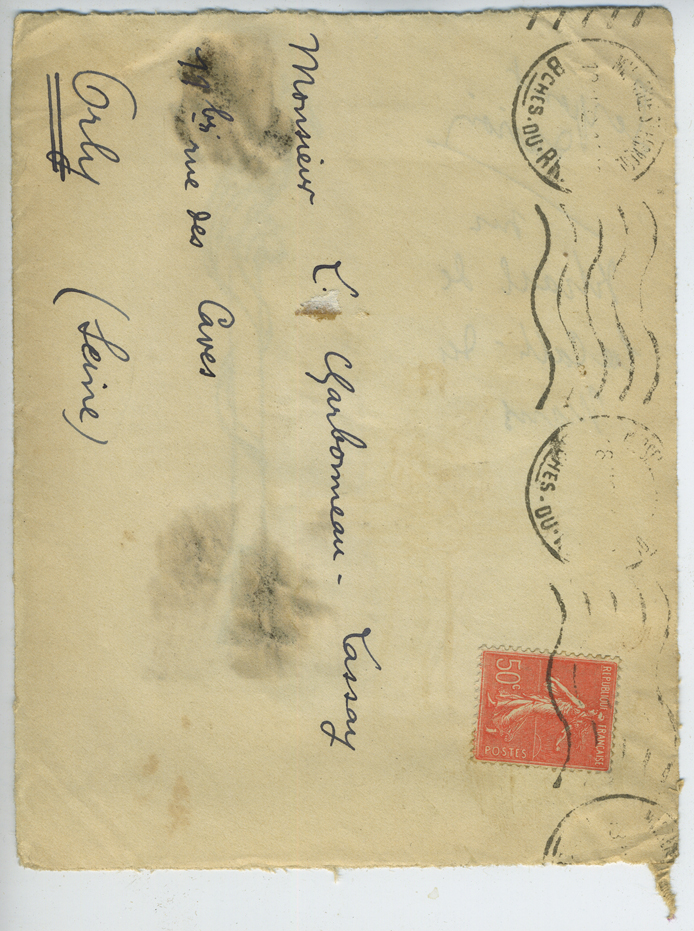 Monsieur L. Charbonneau-Lassay
11 bis rue des Caves
Orly (Seine)
BCHES-DU-RH
CHES-DU-
REPUBLIQUE FRANÇAISE
50c
POSTES